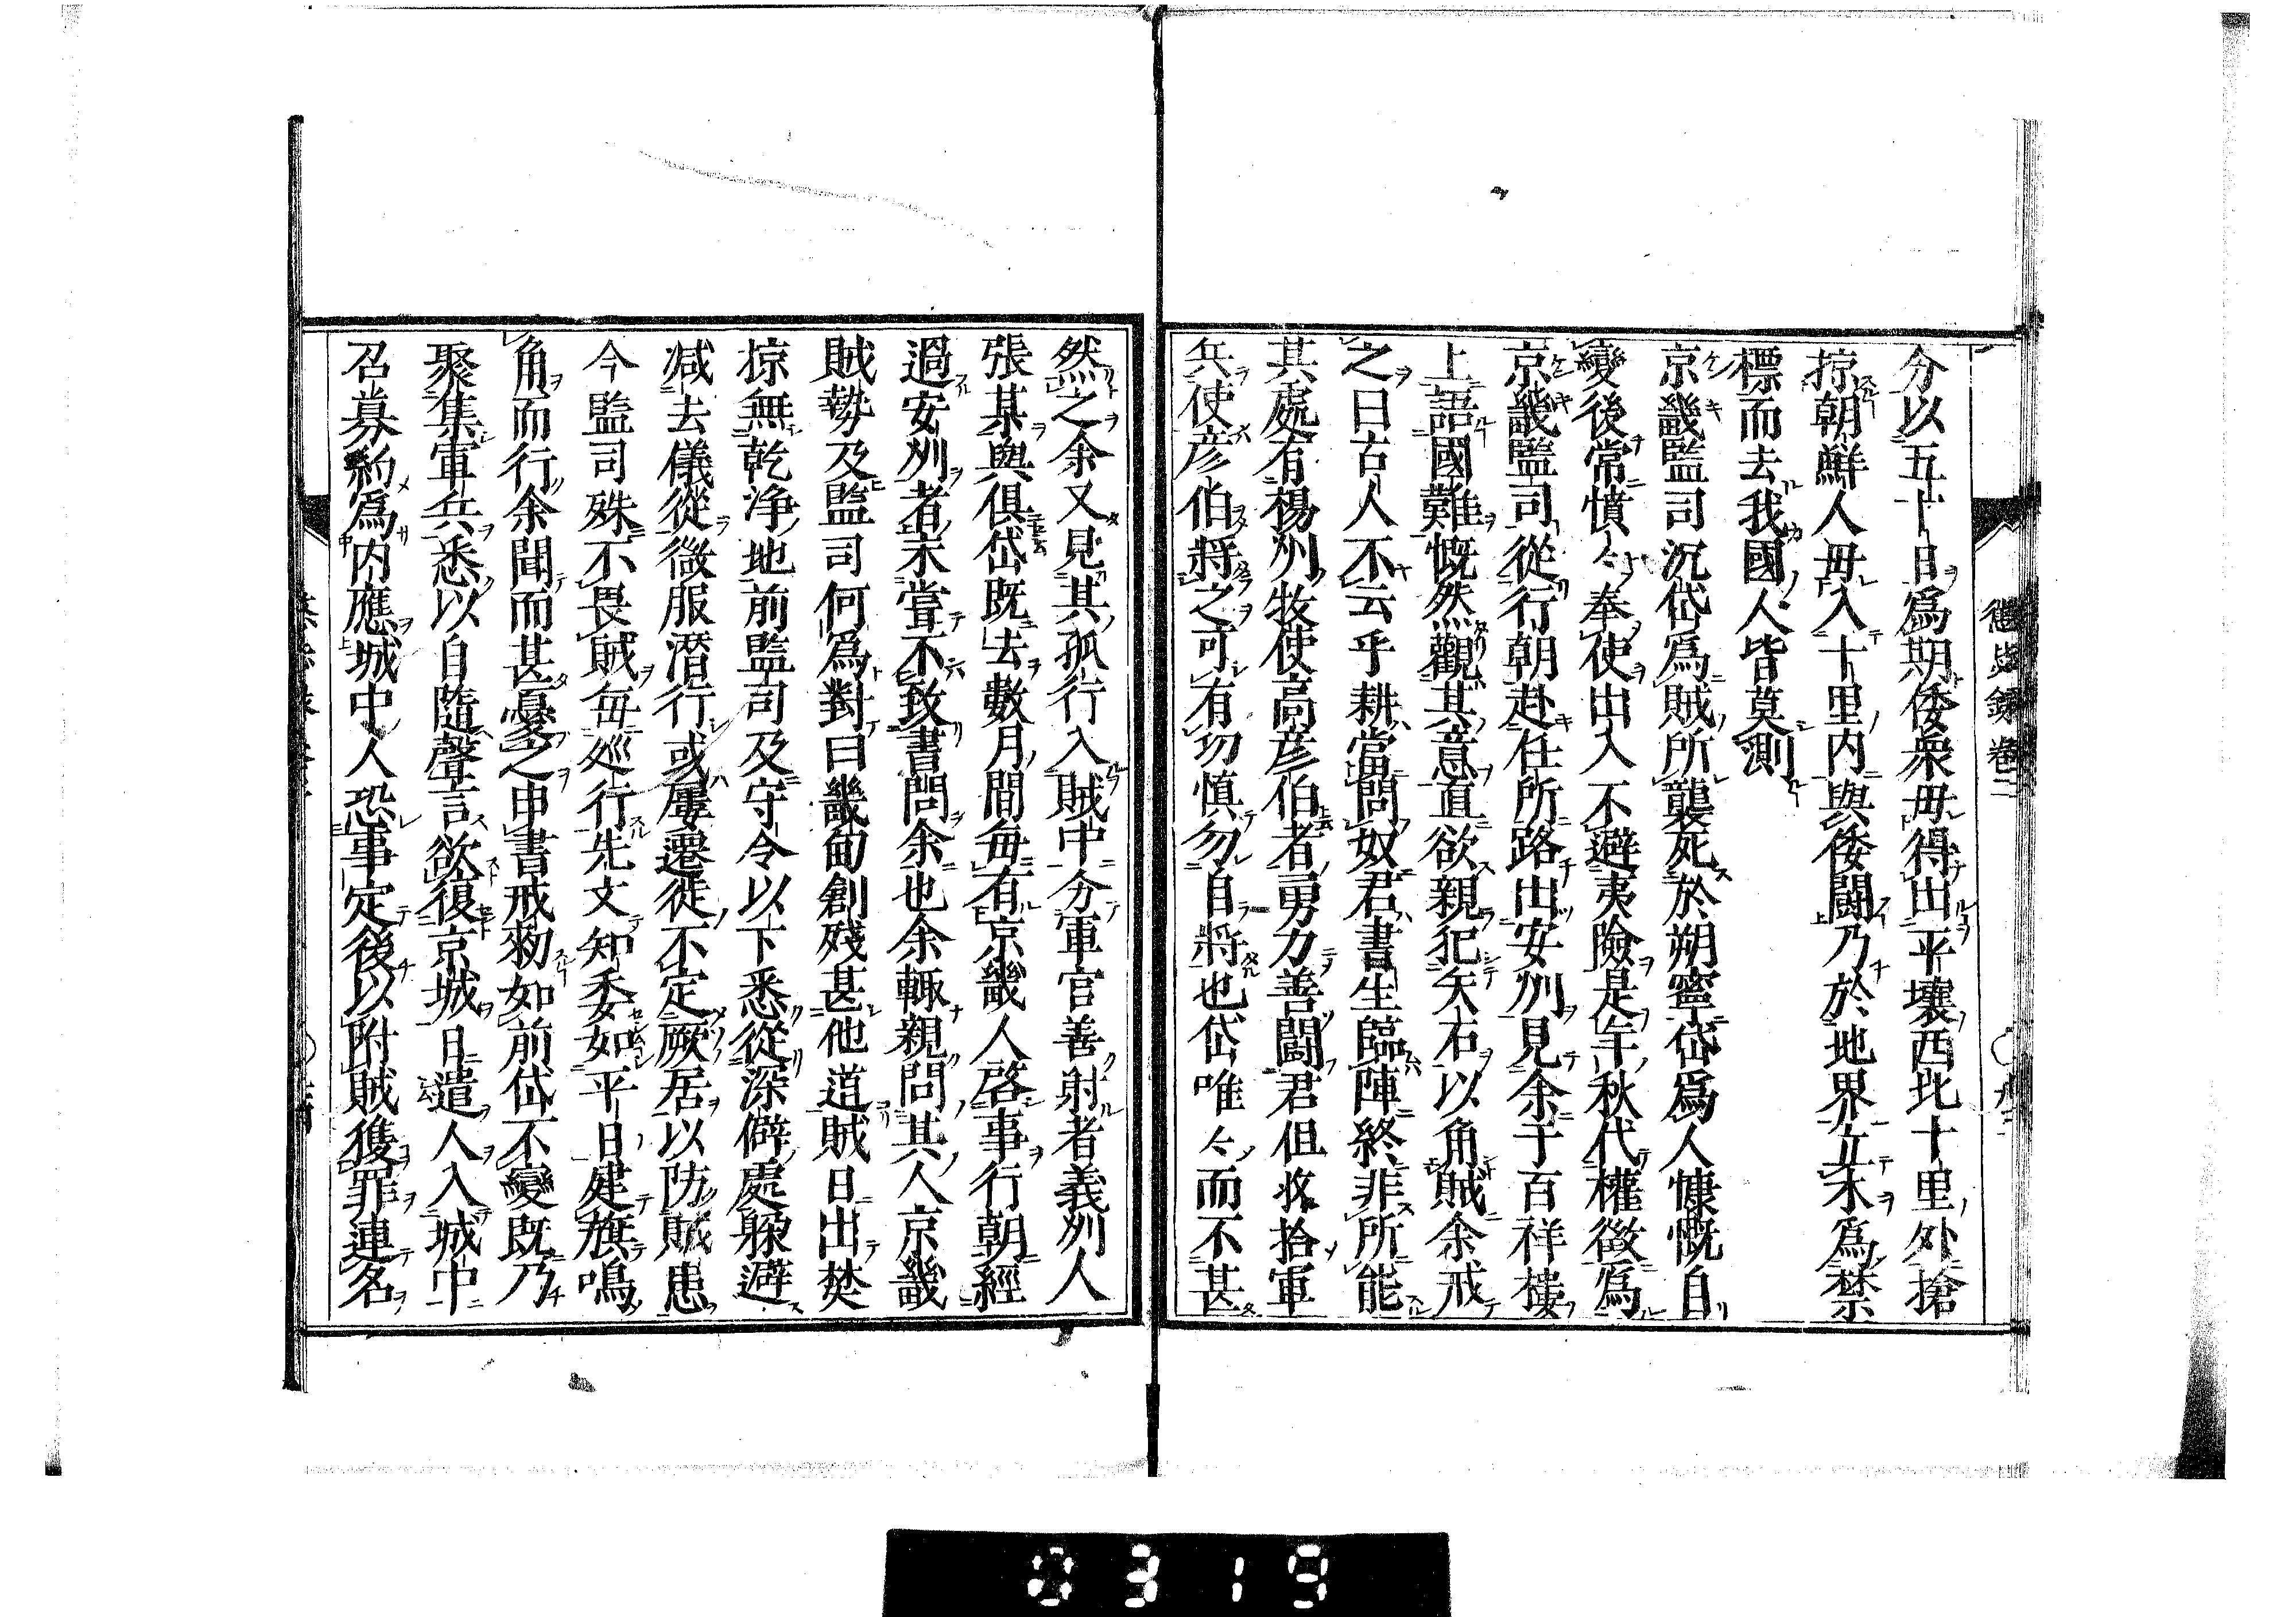 懲毖錄卷二
分以五十日爲期倭衆毋得出平壤西北十里外搶
掠朝鮮人毋入十里内與倭鬪乃於地界立木爲禁
標而去我國人皆莫測
京畿監司沉岱爲賊所襲死於朔寧岱爲人慷慨自
變後常憤々奉使出入不避夷險是年秋代權徵爲
京畿監司從行朝赴任所路出安州見余于百祥樓
上語國難慨然觀其意直欲親犯矢石以角賊余戒
之曰古人不云乎耕當問奴君書生臨陣終非所能
其處有楊州牧使高彦伯者勇力善鬪君但收拾軍
兵使彦伯將之可有功慎勿自將也岱唯々而不甚
然之余又見其孤行入賊中分軍官善射者義州人
張某與俱岱既去數月間每有京畿人啓事行朝經
過安州者未嘗不致書問余也余輒親問其人京畿
賊勢及監司何爲對曰畿甸創殘甚他道賊日出焚
掠無乾淨地前監司及守令以下悉從深僻處躱避
減去儀從微服潛行或屢遷徙不定厥居以防賊患
今監司殊不畏賊每巡行先文知委如平日建旗鳴
角而行余聞而甚憂之申書戒勅如前岱不變既乃
聚集軍兵悉以自隨聲言欲復京城日遣人入城中
召募約爲内應城中人恐事定後以附賊獲罪連名
0319